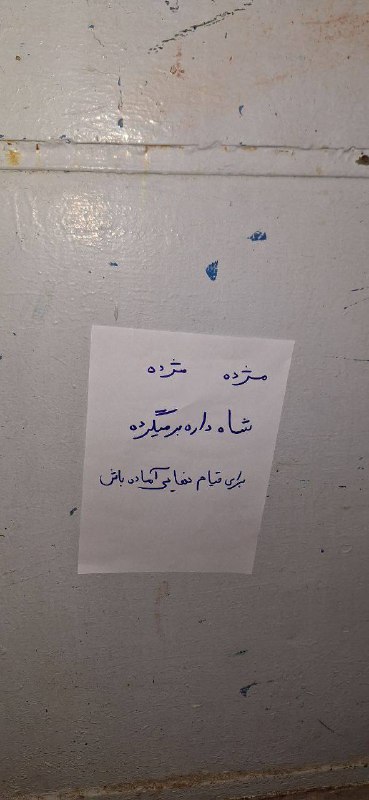 مژده مژده
شاه داره برمیگرده
برای قیام نهایی آماده باش